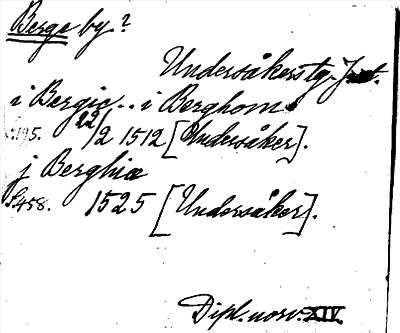 Berge by?
Undersåkers tg. Jtl.
i Bergic.. i Berghom
s. 195. 22/2 1512 [Undersåker].
j Berghiæ
s. 458. 1525 [Undersåker].
Dipl. norv. XIV.